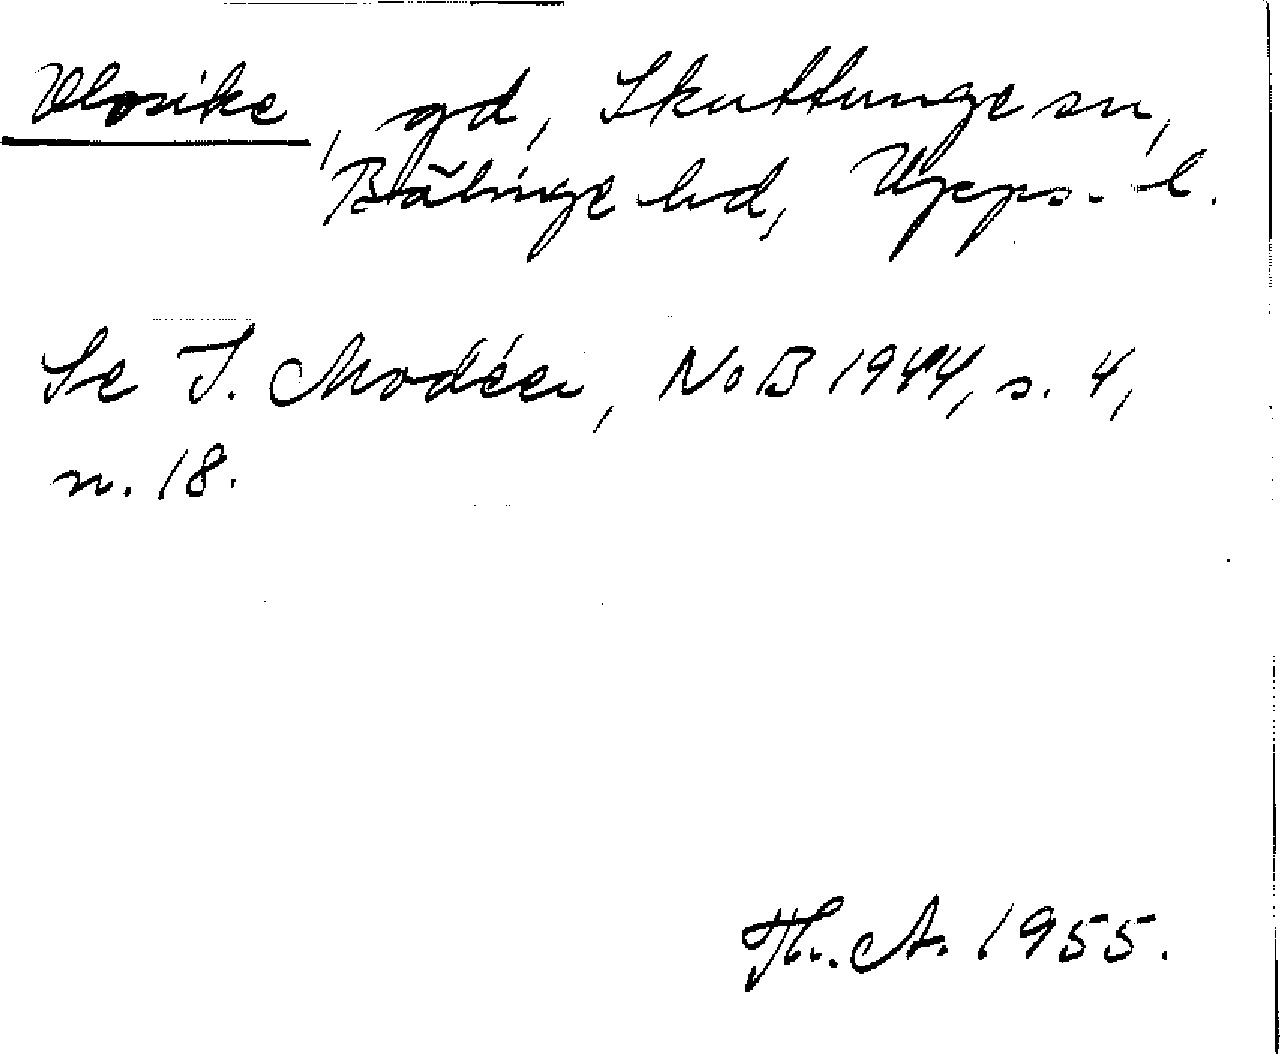 Vlosike, gd, Skuttunge sn,
Bälinge hd, Upps. l.
Se I. Modéer, NoB 1944, s. 4,
n. 18.
Th. A. 1955.